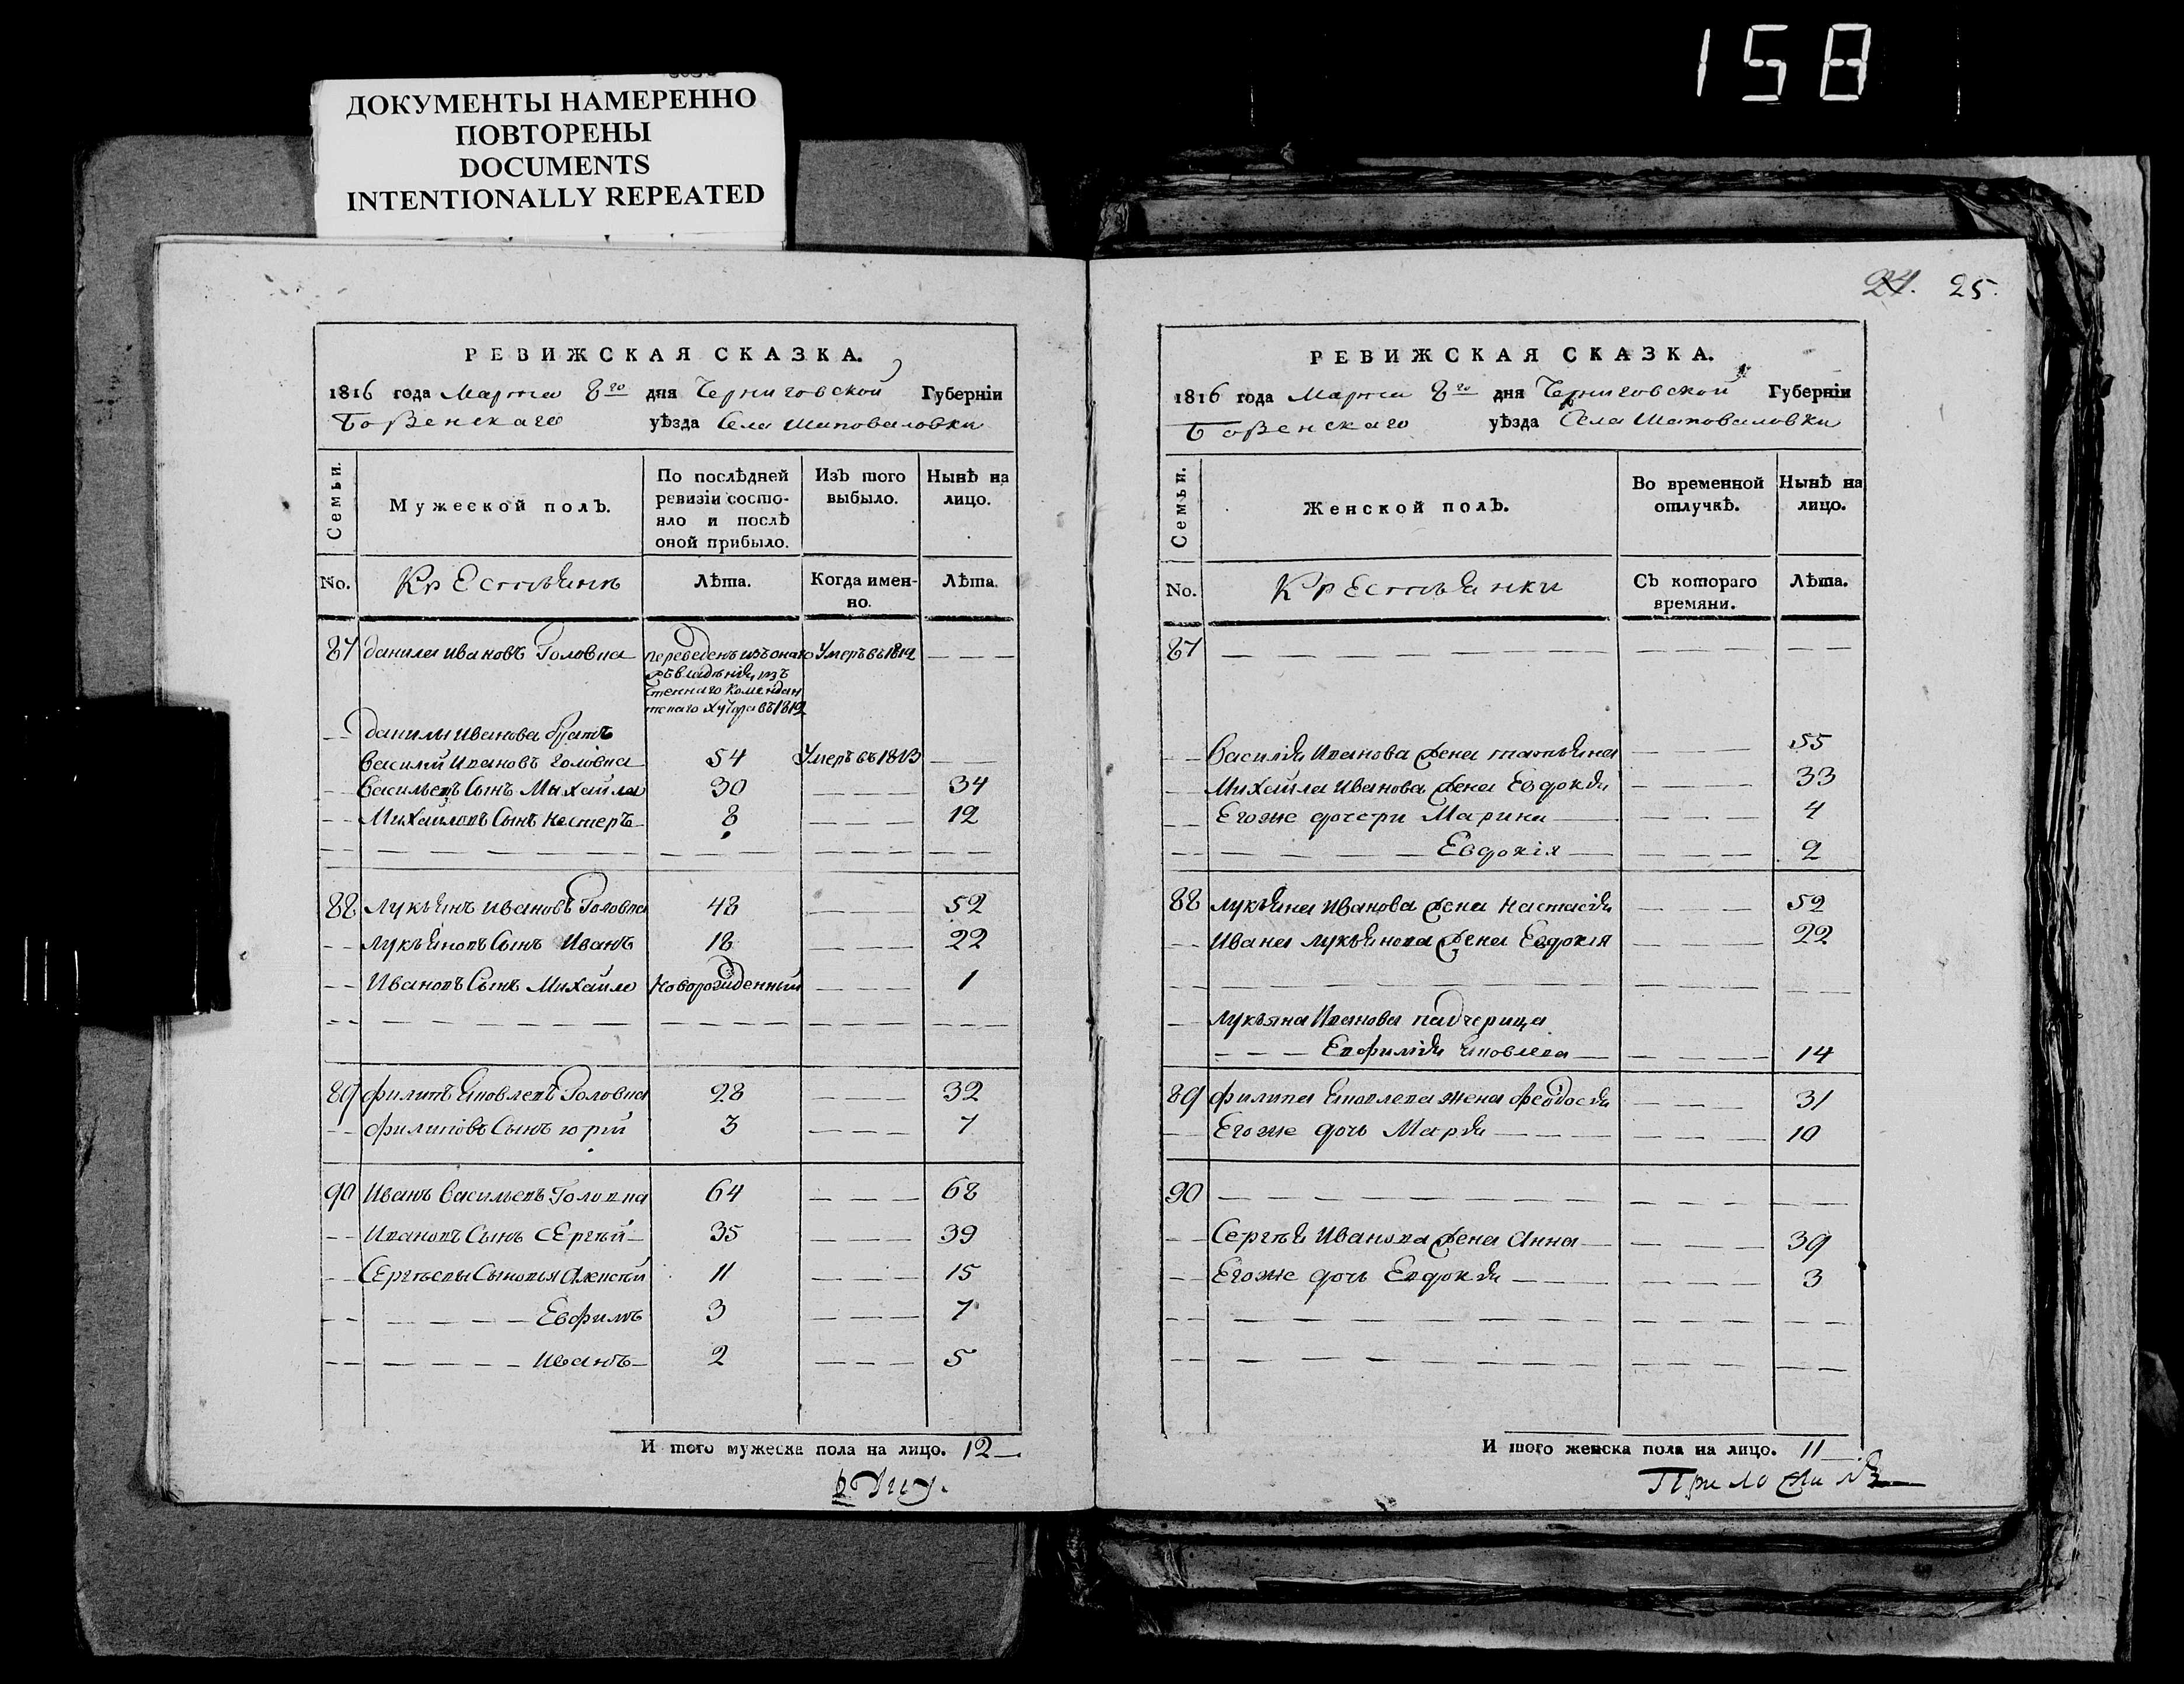 158
ДОКУМЕНТЫ НАМЕРЕННО
ПОВТОРЕНЫ
DOCUMENTS
INTENTIONALLY REPEATED
РЕВИЖСКАЯ СКАЗКА.
1816 года Марта 8го дня Черниговской Губерніи
Борзенскаго уѣзда Села Шаповаловки
Семьи.
Мужеской полъ.
По послѣдней ревизіи состояло и послѣ оной прибыло.
Изъ того выбыло.
Нынѣ на лицо.
No. Крестьянъ Лѣта. Когда именно. Лѣта.
87 Данила Ивановъ Головна переведенъ изъ Умеръ въ 1812
хутора въ 1812
Данилы Иванова братъ
Василий Ивановъ Головна 54 Умеръ въ 1813
Васильевъ Сынъ Михайла 30 34
Михайловъ Сынъ Нестеръ 8 12
88 Лукьянъ Ивановъ Головна 48 52
Лукьяновъ Сынъ Иванъ 18 22
Ивановъ Сынъ Михайло Новорожденный 1
89 Филипъ Яковлевъ Головна 28 32
Филиповъ Сынъ Юрій 3 7
90 Иванъ Васильевъ Головна 64 68
Ивановъ Сынъ Сергѣй 35 39
Сергѣевы Сыновья Алексѣй 11 15
Евфимъ 3 7
Иванъ 2 5
И того мужеска пола на лицо. 12
24. 25.
РЕВИЖСКАЯ СКАЗКА.
1816 года Марта 8го дня Черниговской Губерніи
Борзенскаго уѣзда Села Шаповаловки
Семьи.
Женской полъ.
Во временной отлучкѣ.
Нынѣ на лицо.
No. Крестьянки Съ котораго времяни. Лѣта.
87
Василія Иванова жена Татьяна 55
Михайла Иванова жена Евдокія 33
Егоже дочери Марина 4
Евдокія 2
88 Лукьяна Иванова жена Настасія 52
Ивана Лукьянова жена Евдокія 22
Лукьяна Иванова падчерица
Евфимія Яковлева 14
89 Филипа Яковлева жена Феодосія 31
Егоже дочь Марія 10
90
Сергѣя Иванова жена Анна 39
Егоже дочь Евдокія 3
И того женска пола на лицо. 11